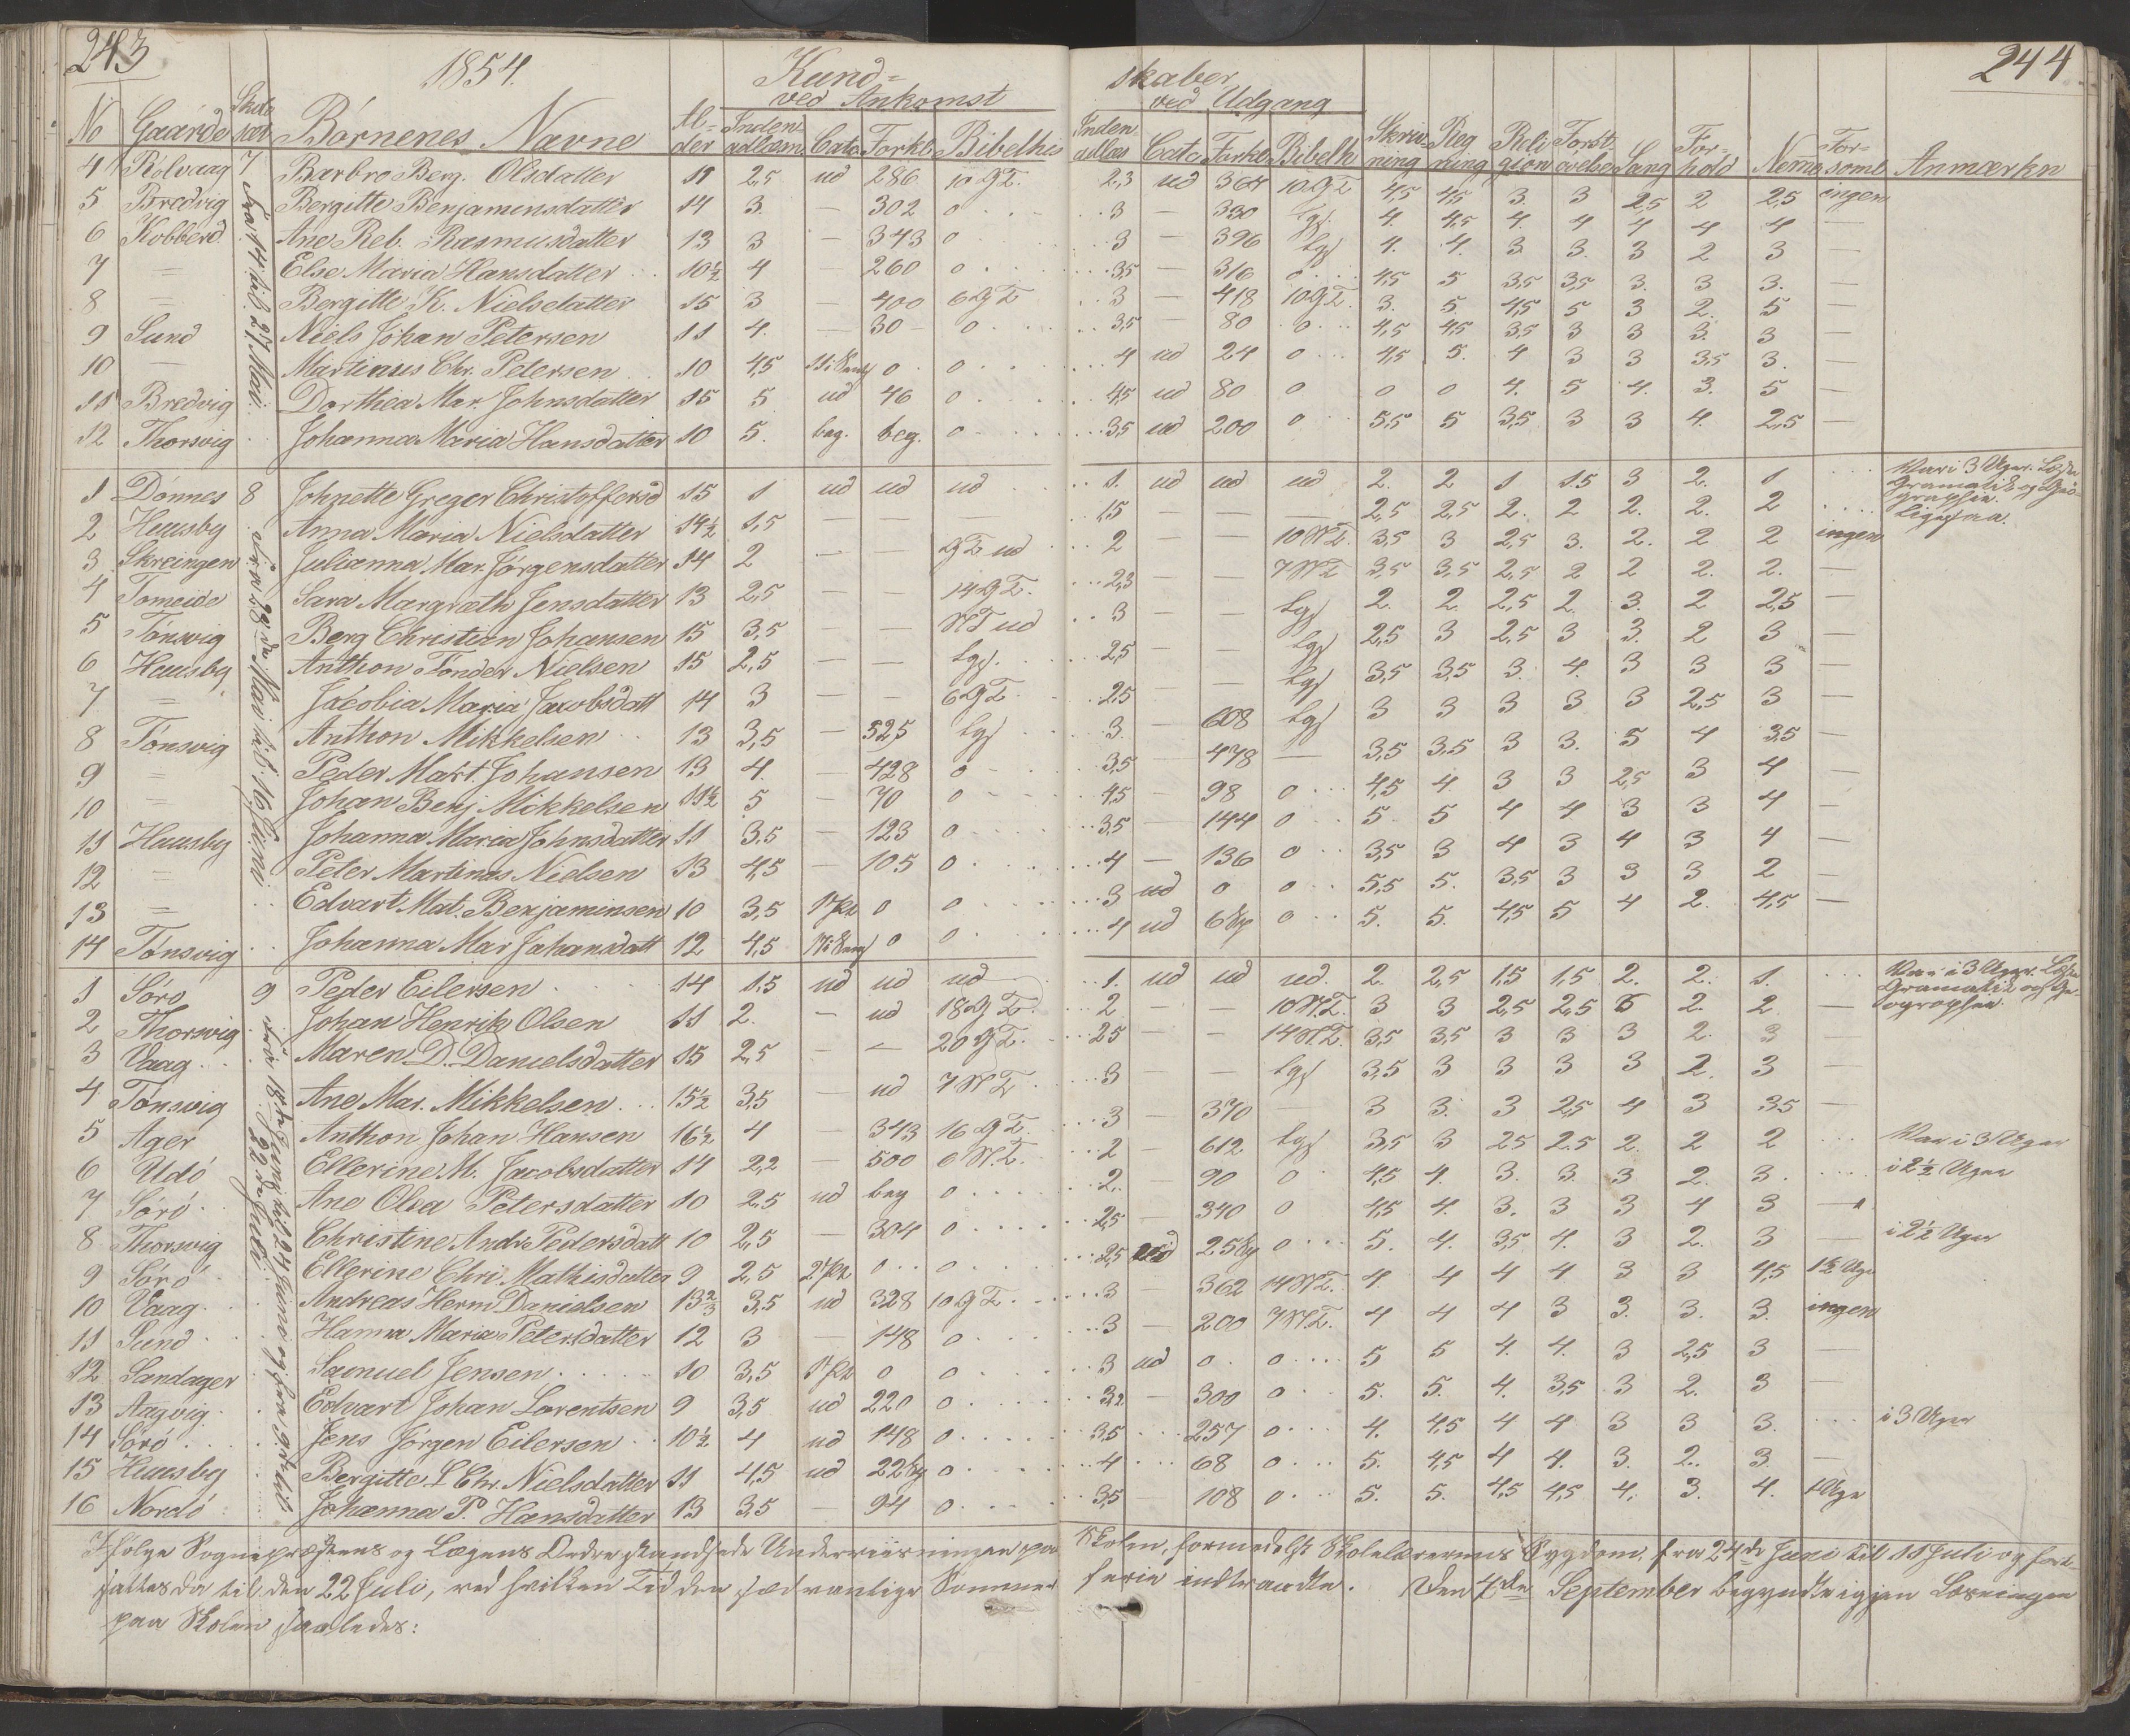 243
1854.
Kund=
skaber
244
ved Ankomst
ved Udgang
No Gaarde Skole sæt Børnenes Navne Al=der Inden=adlæsn. Cate Forkl. Bibelhis Inden=adlæs Cate Forkl. Bibelh Skriv=ning Reg=ning Reli=gion Forst. øvelse Sang For=hold Neme For=soml Anmærkn
4 Rölvaag 7 Barbro Berg. Olsdatter 11 2,5 ud 286 10 G T. 2,3 ud 364 10 G T 4,5 4,5 3. 3 2,5 2 2,5 ingen
5 Bredvig Bergitte Benjaminsdatter 14 3. — 302 0 3 — 330 Lgs. 4. 4,5 4. 4 4 4 4 —
6 Kobberd. Ane Reb. Rasmusdatter 13 3 — 343 0 3 — 396 Lgs 4. 4. 3 3. 3 2 3 —
7 = Else Maria Hansdatter 10½ 4 — 260 0 3,5 — 316 0 4,5 5 3,5 3,5 3. 3 3. —
8 = Bergitte K. Nielsdatter 15 3 — 400 6 G T 3 — 418 10 G T. 3. 5 4,5 5 3 2. 5 —
9 Sund Niels Johan Petersen 11 4. — 30 0 3,5 — 80 0 4,5 4,5 3,5 3 3 3. 3 —
10 — Martinus Chr. Petersen 10 4,5 0 0 4 ud 24 0 4,5 5. 4 3 3 3,5 3. —
11 Bredvig Dorthea Mar. Johnsdatter 15 5 ud 46 0 4,5 ud 80 0 0 0 4. 5 4. 3. 5 —
12 Thorsvig Johanna Maria Hansdatter 10 5. beg. beg. 0 3,5 ud 200 0 5,5 5 3,5 3 3 4. 2,5 —
Fra 14 til 27 Mai.
1 Dönnes 8 Johnette Greger Christoffersd 15 1 ud ud ud 1. ud ud ud 2. 2 1 1.5 3 2. 1 Var i 3 Uger. Læste Gramatik og Geo=graphie.
2 Huusby Anna Maria Nielsdatter 14½ 1,5 — — — 1,5 — — — 2,5 2,5 2. 2 2. 2. 2 ligesaa.
3 Skreingen Julianna Mar. Jørgensdatter 14 2 — G T ud 2 — — 10 N T. 3,5 3 2,5 3. 2. 2 2 ingen
4 Tomeide Sara Margræth Jensdatter 13 2,5 — — 14 G T. 2,3 — — 7 N T 3,5 3,5 2,5 2 2 2. 2. —
5 Tönsvig Berg Christian Johansen 15 3,5 — — N T ud 3 — — Lgs 2. 2. 2,5 2. 3. 2 2,5 —
6 Huusby Anthon Tönder Nielsen 15 2,5 — — Lgs. 2,5 — — Lgs 2,5 3 2,5 3 3. 2 3 —
7 = Jacobia Maria Jacobsdatt 14 3 — — 6 G T 2,5 — — Lgs 3,5 3,5 3. 4. 3 3 3 —
8 Tönsvig Anthon Mikkelsen 13 3,5 — 525 Lgs 3. — 608 Lgs 3 3 3 3 3 2,5 3 —
9 = Peder Mart. Johansen 13 4. — 428 0 3,5 — 478 — 3,5 3,5 3 3. 5 4 3,5 —
10 = Johan Benj Mikkelsen 11½ 5 — 70 0 4,5 — 98 0 4,5 4. 3 3 2,5 3 4 —
11 Huusby Johanna Maria Johnsdatter 11 3.5 — 123 0 3,5 — 144 0 5. 5 4 4 3 3 4 —
12 = Peter Martinus Nielsen 13 4,5 — 105 0 4 — 136 0 3,5 3 4 3 4 3 4 —
13 = Edvart Mat. Benjaminsen 10 3,5 0 0 3 ud 0 0 5,5 5. 3,5 3 3 3 2 —
14 Tönsvig Johanna Mar Johansdatt 12 4,5 0 0 4 ud 0 5. 5. 4,5 5 4 2. 4,5 —
Fra 28de Mai til 16 Juni
1 Sörö 9 Peder Eilersen 14 1.5 ud ud ud 1. ud ud ud. 2. 2,5 1,5 1,5 2. 2. 1. Var i 3 Uger. Læste Gramatik og Ge=ographie.
2 Thorsvig Johan Henrik Olsen 11 2. — ud 18 G T. 2 — — 10 N T. 3 3 2,5 2,5 5 2. 2 —
3 Vaag Maren D. Danielsdatter 15 2,5 — — 20 G T. 2,5 — — 14 N. T. 3,5 3,5 3 3 3 2. 3 —
4 Tonsvig Ane Mar. Mikkelsen 15½ 3,5 — ud 7 N T 3 — — Lgs 3,5 3 3 3 3 2. 3 —
5 Ager Anthon Johan Hansen 16½ 4 — 343 16 G T. 3 — 370 — 3 3. 3 2,5 4 3 3,5 —
6 Udö Ellerine M. Jacobsdatter 14 2,2 — 500 6 N. T. 2 — 612 Lgs 3,5 3 2.5 2.5 2. 2 2 Var i 3 Uger
7 Sörö Ane Olea Petersdatter 10 2,5 ud beg 0 2. — 90 0 4,5 4. 3. 3. 3 2. 3. i 2½ Uger
8 Thorsvig Christine Andr. Pedersdatt 10 2,5 — 304 0 2,5 — 340 0 4,5 4. 3. 3 3 4 3 —
9 Sörö Ellerine Chri. Mathisdatter 9 2,5 0 0 2,5 ud 0 5. 4. 3,5 4. 3 2. 3 — i 2½ Uger
10 Vaag Andreas Herm Danielsen 13⅔ 3,5 ud 328 10 G T. 3 — 362 14 N T. 4. 4 4 4 3 3 4,5 1½ Uge
11 Sund Hanna Maria Petersdatter 12 3 — 148 0 3 — 200 7 N T. 4 4 4 3 3. 3. 3. ingen
12 Sandager Samuel Jensen 10 3,5 0 0 3 ud 0 0 5 5 4. 4. 3 2,5 3 —
13 Aagvig Edvart Johan Lorentsen 9 3,5 ud 220 0 3,2 — 300 0 5. 5. 4. 3,5 3 2. 3 —
14 Sörö Jens Jörgen Eilersen 10½ 4 ud 148 0 3,5 257 0 4. 4,5 4 4 3 3 3. i 3 Uger
15 Huusby Bergitte L Chr. Nielsdatter 11 4,5 ud 0 4 68 0 5. 4,5 4 4. 3. 2. 3 —
16 Nordö Johanna P. Hansdatter 13 3,5 — 94 0 3,5 — 108 0 5. 5. 4,5 4,5 4. 3. 4. 1 Uge
Fra 18de Juni til 24 Juni og fra 9de til 22de Juli.
Ifölge Sognepræstens og Lægens Ordre standsede Underviisningen paa Skolen, formedelst Skolelærerens Sygdom, fra 24de Juni til 11 Juli og fort-
sattes da til den 22 Juli, ved hvilken Tid den sædvanlige Sommer ferie indtraadte. Den 4de September begyndte igjen Læsningen
paa Skolen saaledes: